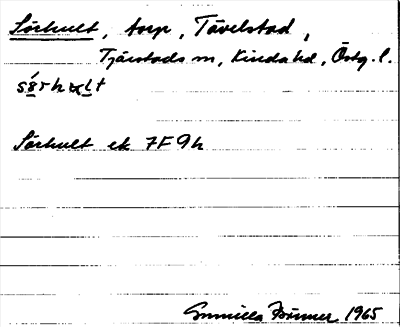 Sörhult, torp, Tävelstad,
Tjärstads sn, Kinda hd, Östg. l.
Sörhult ek 7F9h
Gunnilla 1965